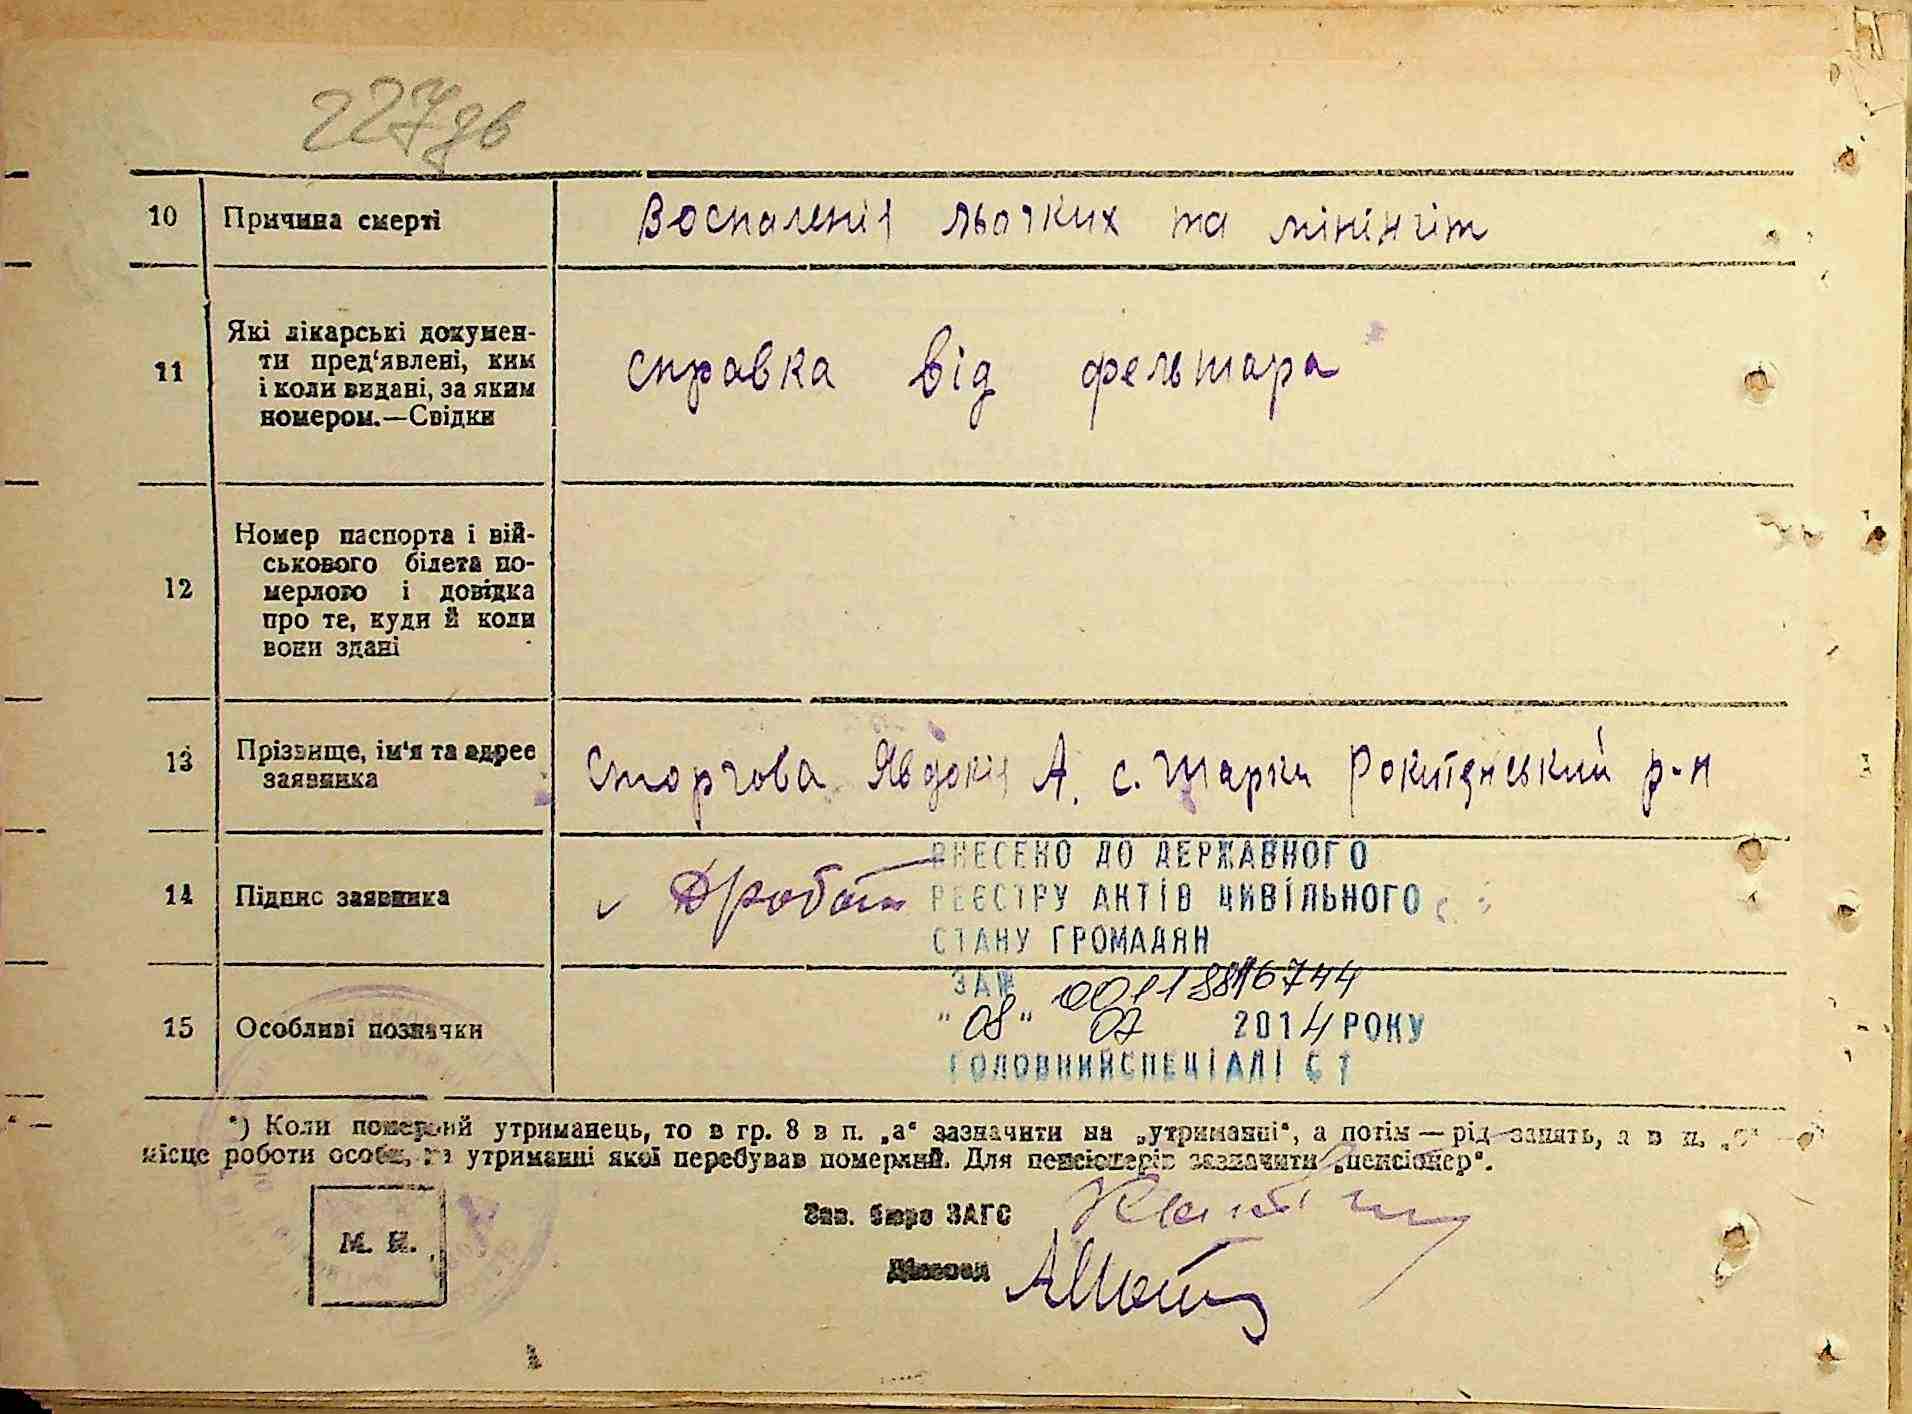 227зв
10 Причина смерті Воспаленія льогких та мінінгіт
11 Які лікарські докумен-
ти пред'явлені, ким
і коли видані, за яким
номером.—Свідки
справка від фельшара
12 Номер паспорта і вій-
ськового білета по-
мерлого і довідка
про те, куди й коли
вони здані
13 Прізвище, ім'я та адрес
заявника
Сторгова Явдокія А. с. Шарки Рокитянський р-н
14 Підпис заявника
ВНЕСЕНО ДО ДЕРЖАВНОГО
РЕЄСТРУ АКТІВ ЦИВІЛЬНОГО
СТАНУ ГРОМАДЯН
ЗА №
15 Особливі позначки
"08" 07 2014 РОКУ
ГОЛОВНИЙ СПЕЦІАЛІСТ
*) Коли померлий утриманець, то в гр. 8 в п. „а“ зазначити на „утриманні“, а потім — рід занять, а в п.
місце роботи особи, на утриманні якої перебував померлий. Для пенсіонерів зазначити „пенсіонер“.
Зав. бюро ЗАГС
М. П.
Діловод